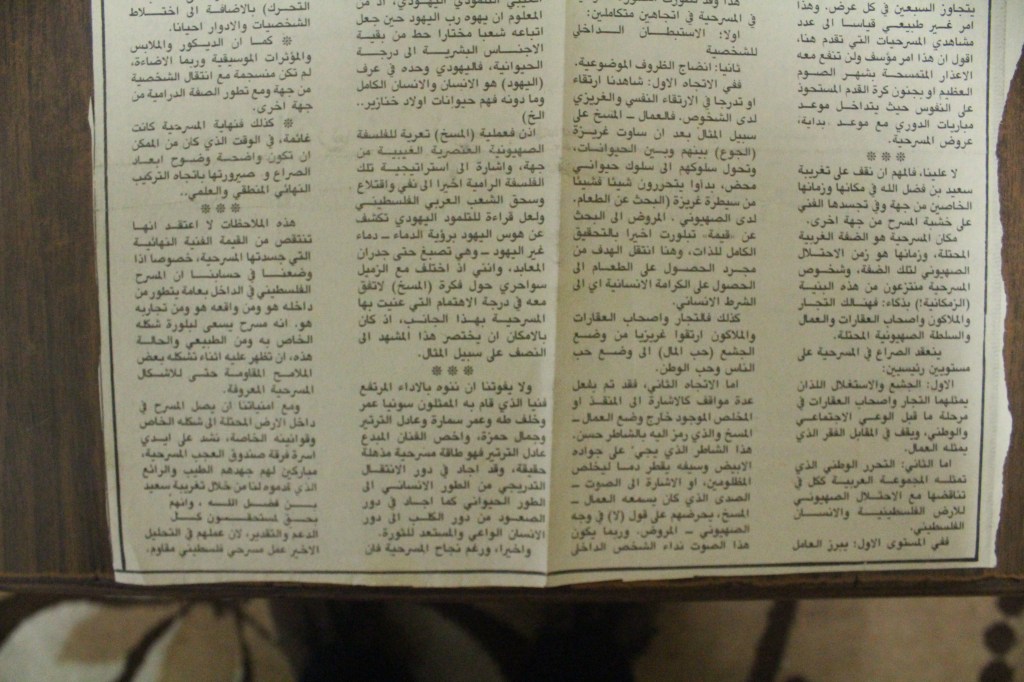 يتجاوز السبعين في كل عرض. وهذا
امر غير طبيعي قياسا الى عدد
مشاهدي المسرحيات التي تقدم هنا،
اقول ان هذا امر مؤسف ولن تنفع معه
الاعذار المتمسحة بشهر الصوم
العظيم او بجنون كرة القدم المستحوذ
على النفوس حيث يتداخل موعد
مباريات الدوري مع موعد بداية،
عروض المسرحية.
***
لا علينا، فالمهم ان نقف على تغريبة
سعيد بن فضل الله في مكانها وزمانها
الخاصين من جهة وفي تجسدها الفني
على خشبة المسرح من جهة اخرى.
مكان المسرحية هو الضفة الغربية
المحتلة، وزمانها هو زمن الاحتلال
الصهيوني لتلك الضفة، وشخوص
المسرحية منتزعون من هذه البنية
(الزمكانية!) بذكاء: فهنالك التجار
والملاكون واصحاب العقارات والعمال
والسلطة الصهيونية المحتلة.
ينعقد الصراع في المسرحية على
مستويين رئيسيين:
الاول: الجشع والاستغلال اللذان
يمثلهما التجار واصحاب العقارات في
مرحلة ما قبل الوعي الاجتماعي
والوطني، ويقف في المقابل الفقر الذي
يمثله العمال.
اما الثاني: التحرر الوطني الذي
تمثله المجموعة العربية ككل في
تناقضها مع الاحتلال الصهيوني
للارض الفلسطينية والانسان
الفلسطيني.
ففي المستوى الاول: يبرز العامل
في المسرحية في اتجاهين متكاملين:
اولا: الاستبطان الداخلي
للشخصية
ثانيا: انضاج الظروف الموضوعية.
ففي الاتجاه الاول: شاهدنا ارتقاء
او تدرجا في الارتقاء النفسي والغريزي
لدى الشخوص. فالعمال ـ المسخ على
سبيل المثال بعد ان ساوت غريزة
(الجوع) بينهم وبين الحيوانات،
وتحول سلوكهم الى سلوك حيواني
محض، بدأوا يتحررون شيئا فشيئا
من سيطرة غريزة (البحث عن الطعام،
لدى الصهيوني، المروض الى البحث
عن قيمة، تبلورت اخيرا بالتحقيق
الكامل للذات، وهنا انتقل الهدف من
مجرد الحصول على الطعام الى
الحصول على الكرامة الانسانية اي الى
الشرط الانساني.
كذلك فالتجار واصحاب العقارات
والملاكون ارتقوا غريزيا من وضع
الجشع (حب المال) الى وضع حب
الناس وحب الوطن.
اما الاتجاه الثاني، فقد تم بفعل
عدة مواقف كالاشارة الى المنقذ او
المخلص الموجود خارج وضع العمال ـ
المسخ والذي رمز اليه بالشاطر حسن.
هذا الشاطر الذي يجيء على جواده
الابيض وسيفه يقطر دما ليخلص
المظلومين، او الاشارة الى الصوت ـ
الصدى الذي كان يسمعه العمال ـ
المسخ، يحرضهم على قول (لا) في وجه
الصهيوني ـ المروض. وربما يكون
هذا الصوت نداء الشخص الداخلي
المعلوم ان يهوه رب اليهود حين جعل
اتباعه شعبا مختارا حط من بقية
الاجناس البشرية الى درجة
الحيوانية، فاليهودي وحده في عرف
(اليهود) هو الانسان والانسان الكامل
وما دونه فهم حيوانات اولاد خنازير..
الخ)
اذن فعملية (المسخ) تعرية للفلسفة
الصهيونية العنصرية الغيبية من
جهة، واشارة الى استراتيجية تلك
الفلسفة الرامية اخيرا الى نفي واقتلاع
وسحق الشعب العربي الفلسطيني
ولعل قراءة للتلمود اليهودي تكشف
عن هوس اليهود برؤية الدماء ـ دماء
غير اليهود ـ وهي تصبغ حتى جدران
المعابد، وانني اذ اختلف مع الزميل
سواحري حول فكرة (المسخ) لاتفق
معه في درجة الاهتمام التي عنيت بها
المسرحية بهذا الجانب، اذ كان
بالامكان ان يختصر هذا المشهد الى
النصف على سبيل المثال.
***
ولا يفوتنا ان ننوه بالاداء المرتفع
فنيا الذي قام به الممثلون سونيا عمر
وخلف طه وعمر سمارة وعادل الترتير
وجمال حمزة، واخص الفنان المبدع
عادل الترتير فهو طاقة مسرحية مذهلة
حقيقة، وقد اجاد في دور الانتقال
التدريجي من الطور الانساني الى
الطور الحيواني كما اجاد في دور
الصعود من دور الكلب الى دور
الانسان الواعي والمستعد للثورة.
واخيرا، ورغم نجاح المسرحية فان
التحرك) بالاضافة الى اختلاط
الشخصيات والادوار احيانا.
* كما ان الديكور والملابس
والمؤثرات الموسيقية وربما الاضاءة،
لم تكن منسجمة مع انتقال الشخصية
من جهة ومع تطور الصفة الدرامية من
جهة اخرى.
* كذلك فنهاية المسرحية كانت
غائمة، في الوقت الذي كان من الممكن
ان تكون واضحة وضوح ابعاد
الصراع و صيرورتها باتجاه التركيب
النهائي المنطقي والعلمي..
***
هذه الملاحظات لا اعتقد انها
تنتقص من القيمة الفنية النهائية
التي جسدتها المسرحية، خصوصا اذا
وضعنا في حسابنا ان المسرح
الفلسطيني في الداخل بعامة يتطور من
داخله هو ومن واقعه هو ومن تجاربه
هو. انه مسرح يسعى لبلورة شكله
الخاص به ومن الطبيعي والحالة
هذه، ان تظهر عليه اثناء تشكله بعض
الملامح المقاومة حتى للاشكال
المسرحية المعروفة.
ومع امنياتنا ان يصل المسرح في
داخل الارض المحتلة الى شكله الخاص
وقوانينه الخاصة، نشد على ايدي
اسرة فرقة صندوق العجب المسرحية،
مباركين لهم جهدهم الطيب والرائع
الذي قدموه لنا من خلال تغريبة سعيد
بن فضل الله، وانهم
بحق لمستحقون كل
الدعم والتقدير، لان عملهم في التحليل
الاخير عمل مسرحي فلسطيني مقاوم.